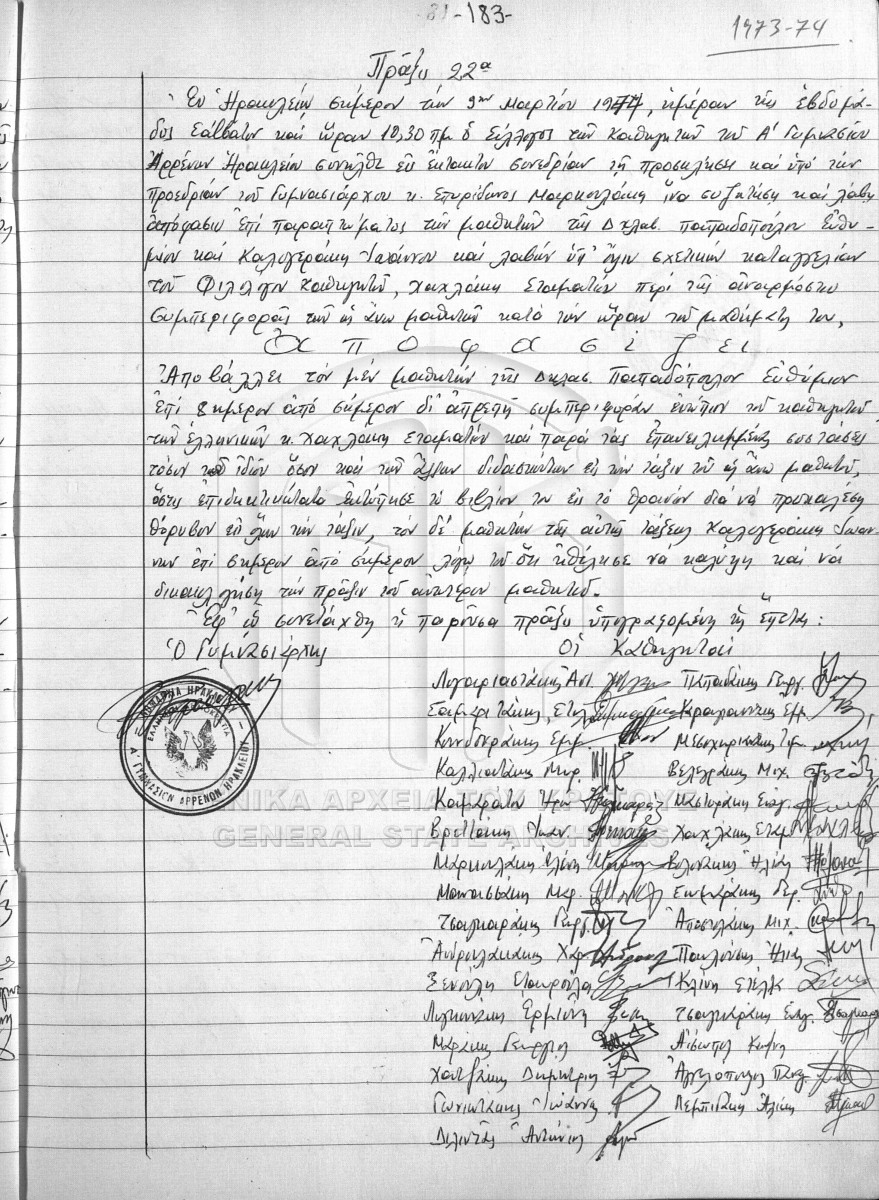 -183-
1973-74
Πρᾶξις 22α
Ἐν Ἡρακλείῳ σήμερον τήν 9ην Μαρτίου 1974, ἡμέραν τῆς ἑβδομά-
δος Σάββατον καί ὥραν 10,30 πμ ὁ Σύλλογος τῶν Καθηγητῶν τοῦ Α' Γυμνασίου
Ἀρρένων Ἡρακλείου συνῆλθε εἰς ἔκτακτον συνεδρίαν τῇ προσκλήσει καί ὑπό τήν
προεδρίαν τοῦ Γυμνασιάρχου κ. Σπυρίδωνος Μαρκουλάκη ἵνα συζητήση καί λάβη
ἀπόφασιν ἐπί παραπτώματος τῶν μαθητῶν τῆς Δ τάξ. Παπαδοπούλου Εὐθυ-
μίου καί Καλογεράκη Ἰωάννου καί λαβών ὑπ' ὄψιν σχετικήν καταγγελίαν
τοῦ Φιλολόγου Καθηγητοῦ, Χαχλάκη Σταματίου περί τῆς ἀναρμόστου
συμπεριφορᾶς τῶν ὡς ἄνω μαθητῶν κατά τήν ὥραν τοῦ μαθήματός του,
Ἀ π ο φ α σ ί ζ ε ι
Ἀποβάλλει τόν μέν μαθητήν τῆς Παπαδόπουλον Εὐθύμιον
ἐπί 8ήμερον ἀπό σήμερον δι' ἀπρεπῆ συμπεριφοράν ἐνώπιον τοῦ καθηγητοῦ
τῶν ἑλληνικῶν κ. Χαχλάκη Σταματίου καί παρά τάς ἐπανειλημμένας συστάσεις
τόσον τοῦ ἰδίου ὅσον καί τῶν ἄλλων διδασκόντων εἰς τήν τάξιν τοῦ ὡς ἄνω μαθητοῦ,
ὅστις ἐπιδεικτικώτατα ἐκτύπησε τό βιβλίον του εἰς τό θρανίον διά νά προκαλέση
θόρυβον εἰς ὅλην τήν τάξιν, τόν δέ μαθητήν τῆς αὐτῆς τάξεως Καλογεράκη Ἰωάν-
νην ἐπί 5ήμερον ἀπό σήμερον λόγῳ τοῦ ὅτι ἠθέλησε νά καλύψη καί νά
δικαιολογήση τήν πρᾶξιν τοῦ ἀνωτέρου μαθητοῦ.
Ἐφ' ᾧ συνετάχθη ἡ παροῦσα πρᾶξις ὑπογραφομένη ὡς ἕπεται:
Ὁ Γυμνασιάρχης Οἱ Καθηγηταί
Α' ΓΥΜΝΑΣΙΟΝ ΑΡΡΕΝΩΝ ΗΡΑΚΛΕΙΟΥ
Λογαριαστάκης Ἀντ. Παπαδάκης Γεωργ.
Σαμαριτάκης Στυλ. Καραγιαννάκης Εμμ.
Κουνδουράκης Εμμ
Καλλιατάκης Μιρ. Βελεγράκης Μιχ.
Καμαράτου Ηρώ Μαστοράκης Ευάγ.
Βρεττάκης Ἰωάν. Χαχλάκης Σταμ
Μαρκουλάκη Ελένη Ἠλίας
Μανασσάκης Μαρ.
Τσαγκαράκης Γεωργ. Ἀποστολάκης Μιχ.
Ἀνδρουλακάκης Χαρ Παυλούσης Ἠλίας
Ξενούλη Σταυρούλα Κλίνη Στέλλα
Λυγκωνάκη Ερμιόνη Τσαγκαράκης Ευάγ.
Μαράκης Γεώργιος
Χατζάκης Δημήτριος Ἀγγελόπουλος Παν.
Γωνιωτάκης Ἰωάννης Λεμπιδάκης Ἀλέκος
Διλιντᾶς Ἀντώνιος
ΓΕΝΙΚΑ ΑΡΧΕΙΑ ΤΟΥ ΚΡΑΤΟΥΣ
GENERAL STATE ARCHIVES